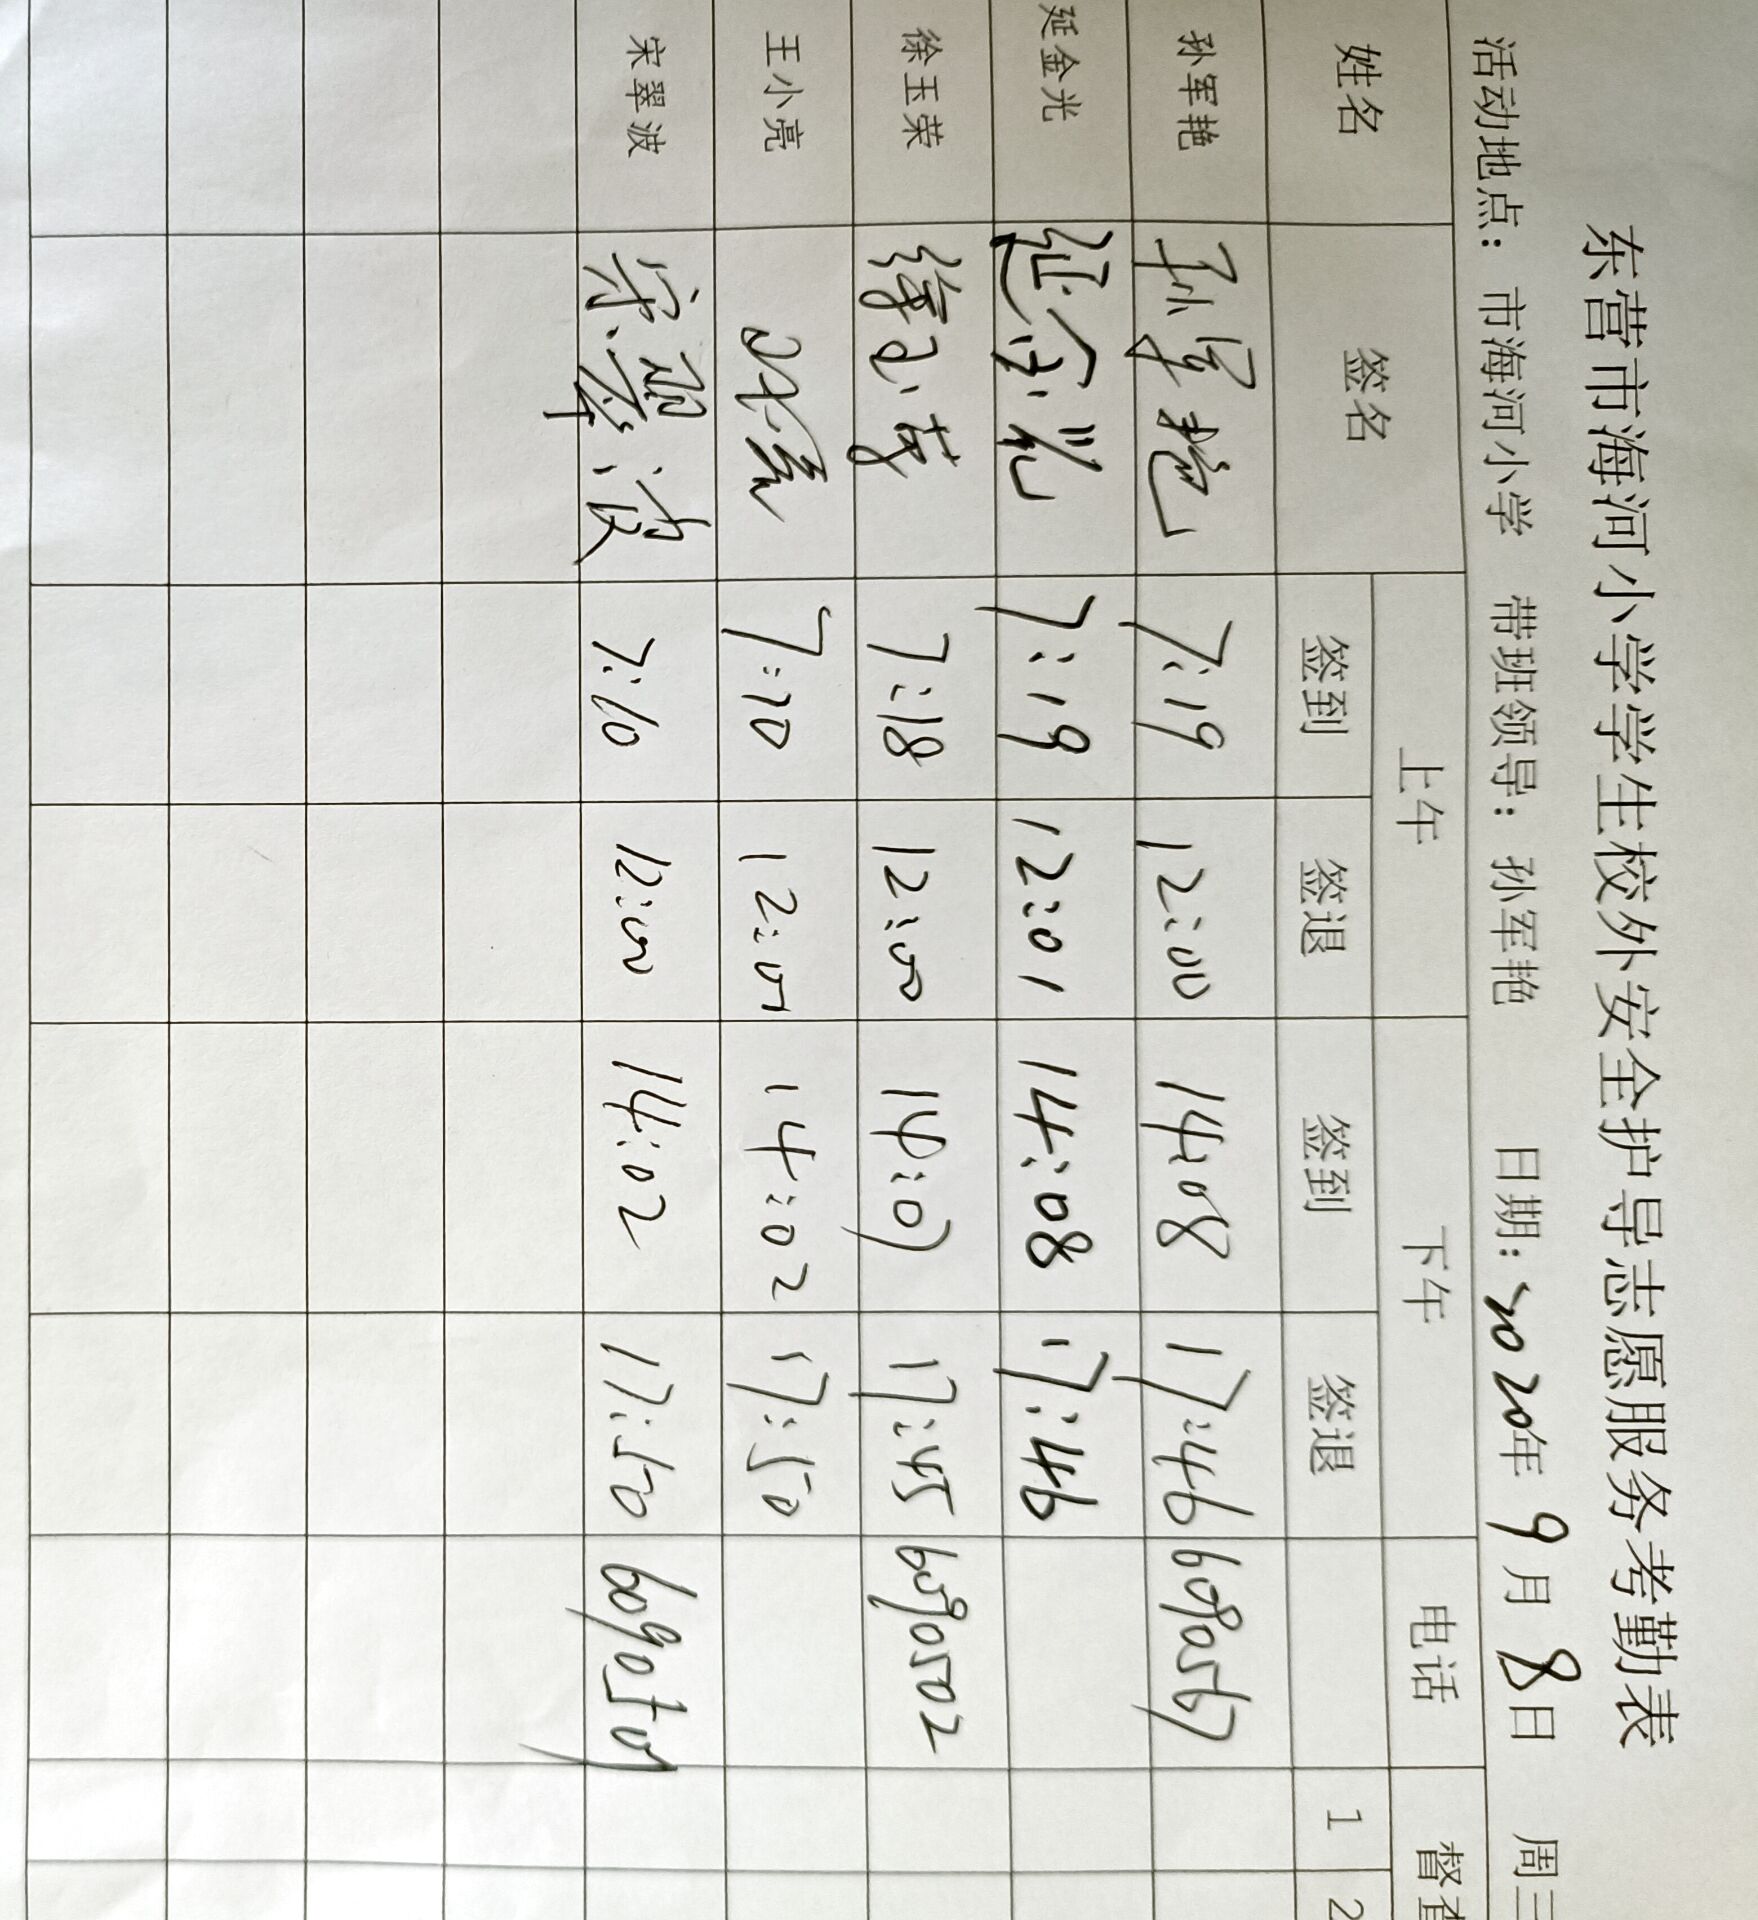 东营市海河小学学生校外安全护导志愿服务考勤表
活动地点：市海河小学 带班领导：孙军艳 日期：2020年9月8日 周三
姓名 签名 上午 下午 电话 督查
签到 签退 签到 签退 1 2
孙军艳 孙军艳 7:19 12:00 14:08 17:46 6090567
延金光 延金光 7:19 12:01 14:08 17:46
徐玉荣 徐玉荣 7:18 12:00 14:07 17:45 6090502
王小亮 7:10 12:01 14:02 17:50
宋翠波 宋翠波 7:10 12:00 14:02 17:50